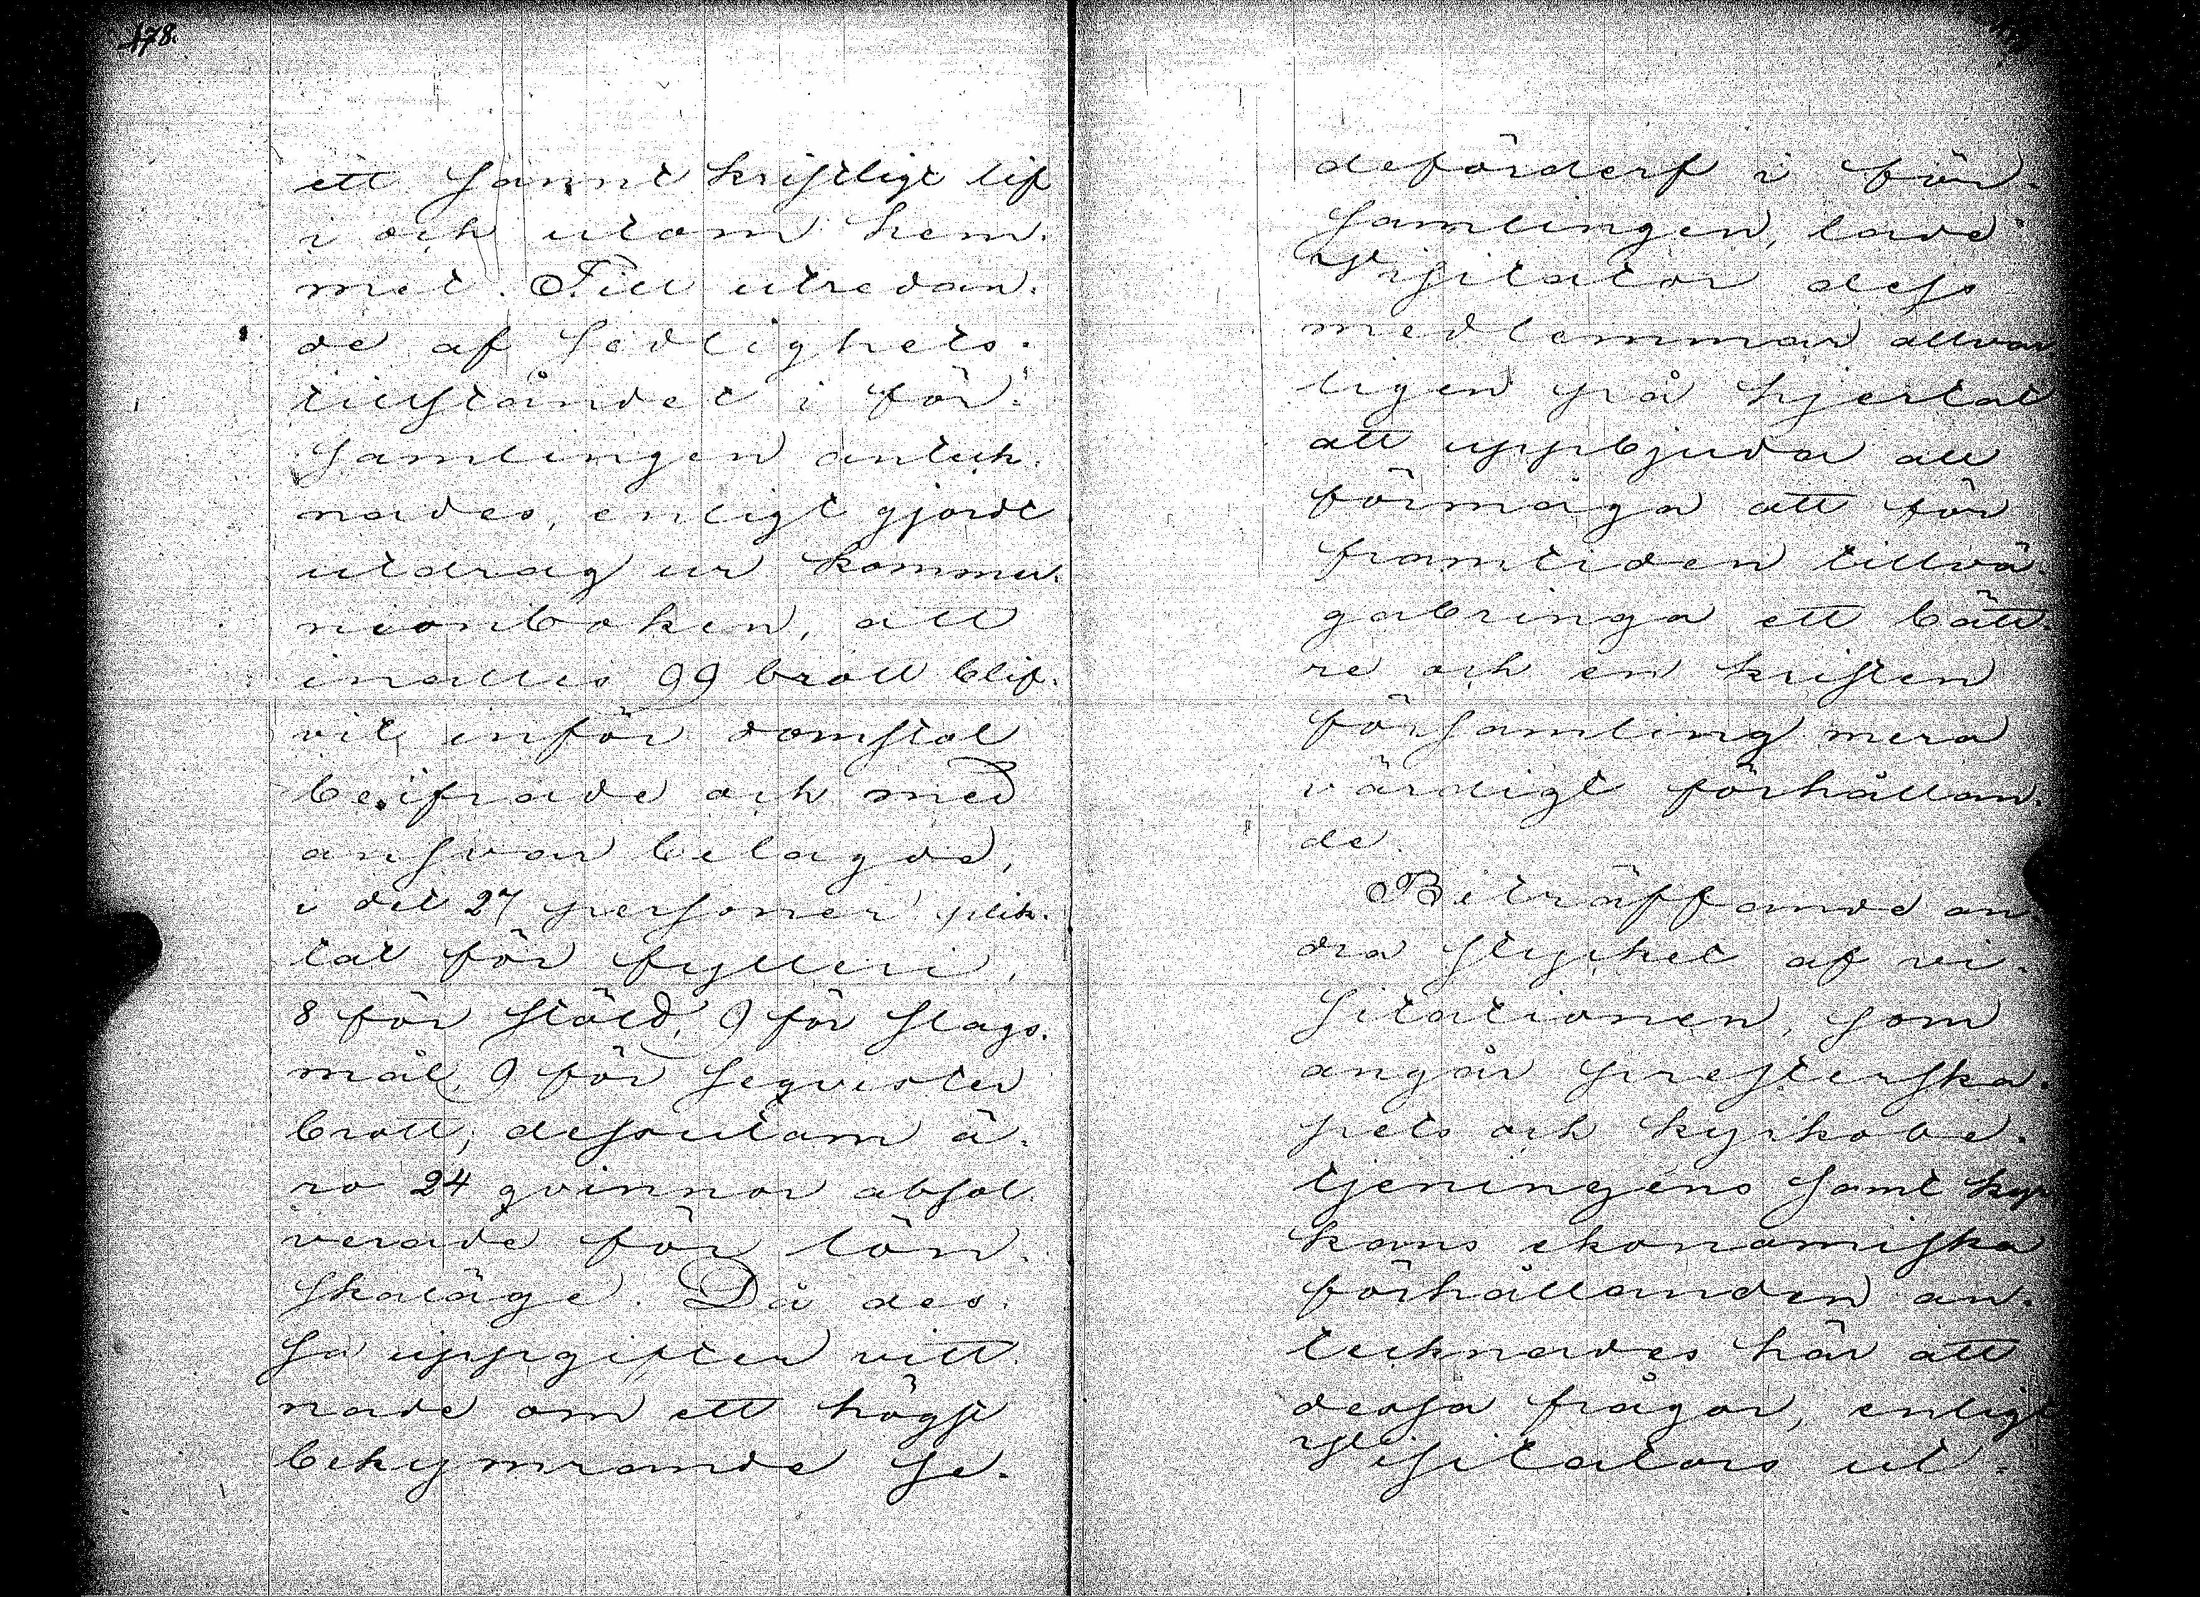 178.
ett sannt kristligt lif
i och utom hem-
met. Till utredan-
de af sedlighets-
tillståndet i för-
samlingen anteck-
nades, enligt gjordt
utdrag ur kommu-
nionboken, att
inalles 99 brott blif-
vit inför domstol
beifrade och med
ansvar belagde,
i det 27 personer plik-
tat för fylleri,
8 för stöld, 9 för slags-
mål, 9 för seqvester
brott; dessutom ä-
ro 24 qvinnor absol-
verade för lön-
skaläge. Då des-
sa uppgifter vitt-
nade om ett högst
bekymrande se-
deförderf i för-
samlingen, lade
Visitator dess
medlemmar allvar-
ligen på hjertat
att uppbjuda all
förmåga att för
framtiden tillvä-
gabringa ett bätt-
re och en kristen
församling mera
värdigt förhållan-
de.
Beträffande an-
dra stycket af vi-
sitationen, som
angår presterska-
pets och kyrkobe-
tjeningens samt kyr-
kans ekonomiska
förhållanden an-
tecknades här att
dessa frågor, enligt
Visitators ut-